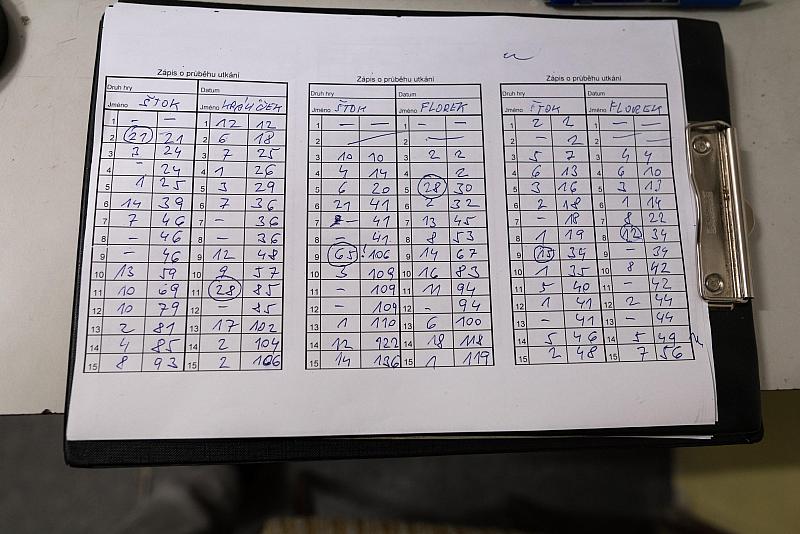 Zápis o průběhu utkání
Druh hry Datum
Jméno ŠTOK Jméno HRALÍČEK
1 – – 1 12 12
2 21 21 2 6 18
3 3 24 3 7 25
4 – 24 4 1 26
5 1 25 5 3 29
6 14 39 6 7 36
7 7 46 7 – 36
8 – 46 8 – 36
9 – 46 9 12 48
10 13 59 10 9 57
11 10 69 11 28 85
12 10 79 12 – 85
13 2 81 13 17 102
14 4 85 14 2 104
15 8 93 15 2 106
Zápis o průběhu utkání
Druh hry Datum
Jméno ŠTOK Jméno FLOREK
1 – – 1 – –
2 2 –
3 10 10 3 2 2
4 4 14 4 2
5 6 20 5 28 30
6 21 41 6 2 32
7 – 41 7 13 45
8 41 8 8 53
9 65 106 9 14 67
10 3 109 10 16 83
11 – 109 11 11 94
12 – 109 12 – 94
13 1 110 13 6 100
14 12 122 14 18 118
15 14 136 15 1 119
Zápis o průběhu utkání
Druh hry Datum
Jméno ŠTOK Jméno FLOREK
1 2 2 1 – –
2 – 2 2 – –
3 5 7 3 4 4
4 6 13 4 6 10
5 3 16 5 3 13
6 2 18 6 1 14
7 – 18 7 8 22
8 1 19 8 12 34
9 15 34 9 – 34
10 1 35 10 8 42
11 5 40 11 – 42
12 1 41 12 2 44
13 – 41 13 – 44
14 5 46 14 5 49
15 2 48 15 7 56